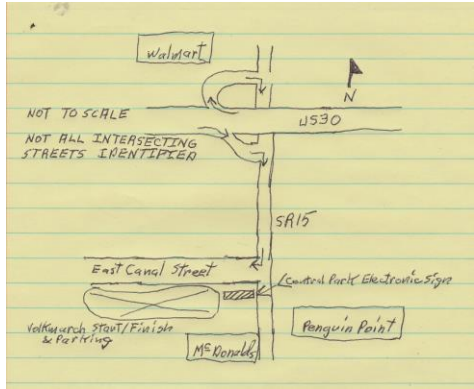 Walmart
N
NOT TO SCALE
US30
NOT ALL INTERSECTING
STREETS IDENTIFIED
SR15
East Canal Street
Central Park Electronic Sign
Volkmarch Start/Finish
& Parking
Penguin Point
McDonalds